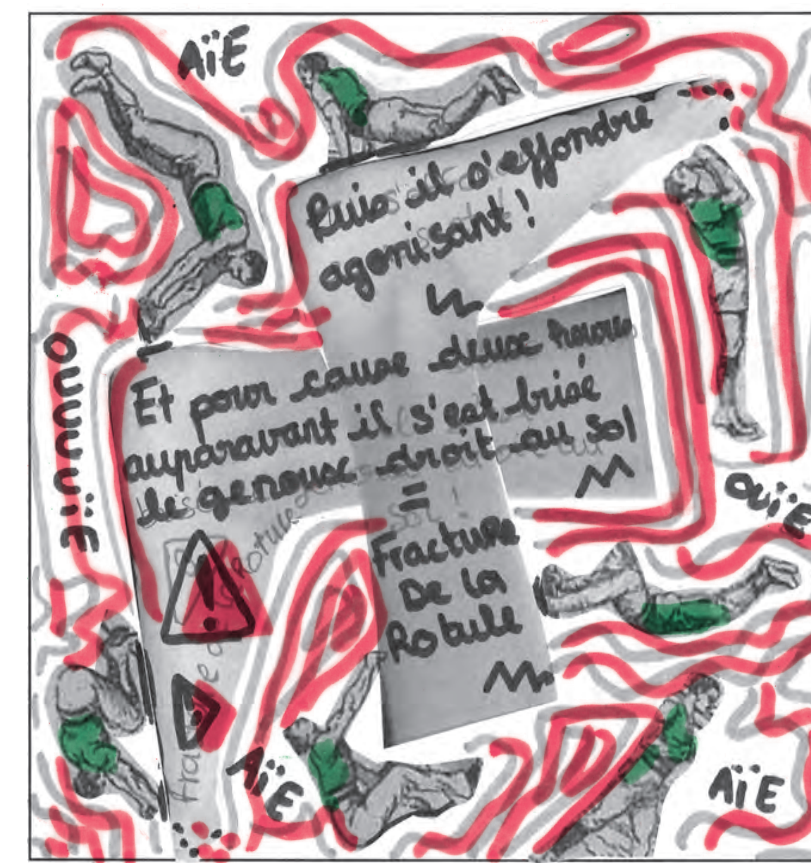 AïE
Puis il s'effondre
agonisant !
Et pour cause deux heures
auparavant il s'est brisé
le genoux droit au sol
=
Fracture
De la
Rotule
OUUUUUïE
OUïE
!
AïE
AïE